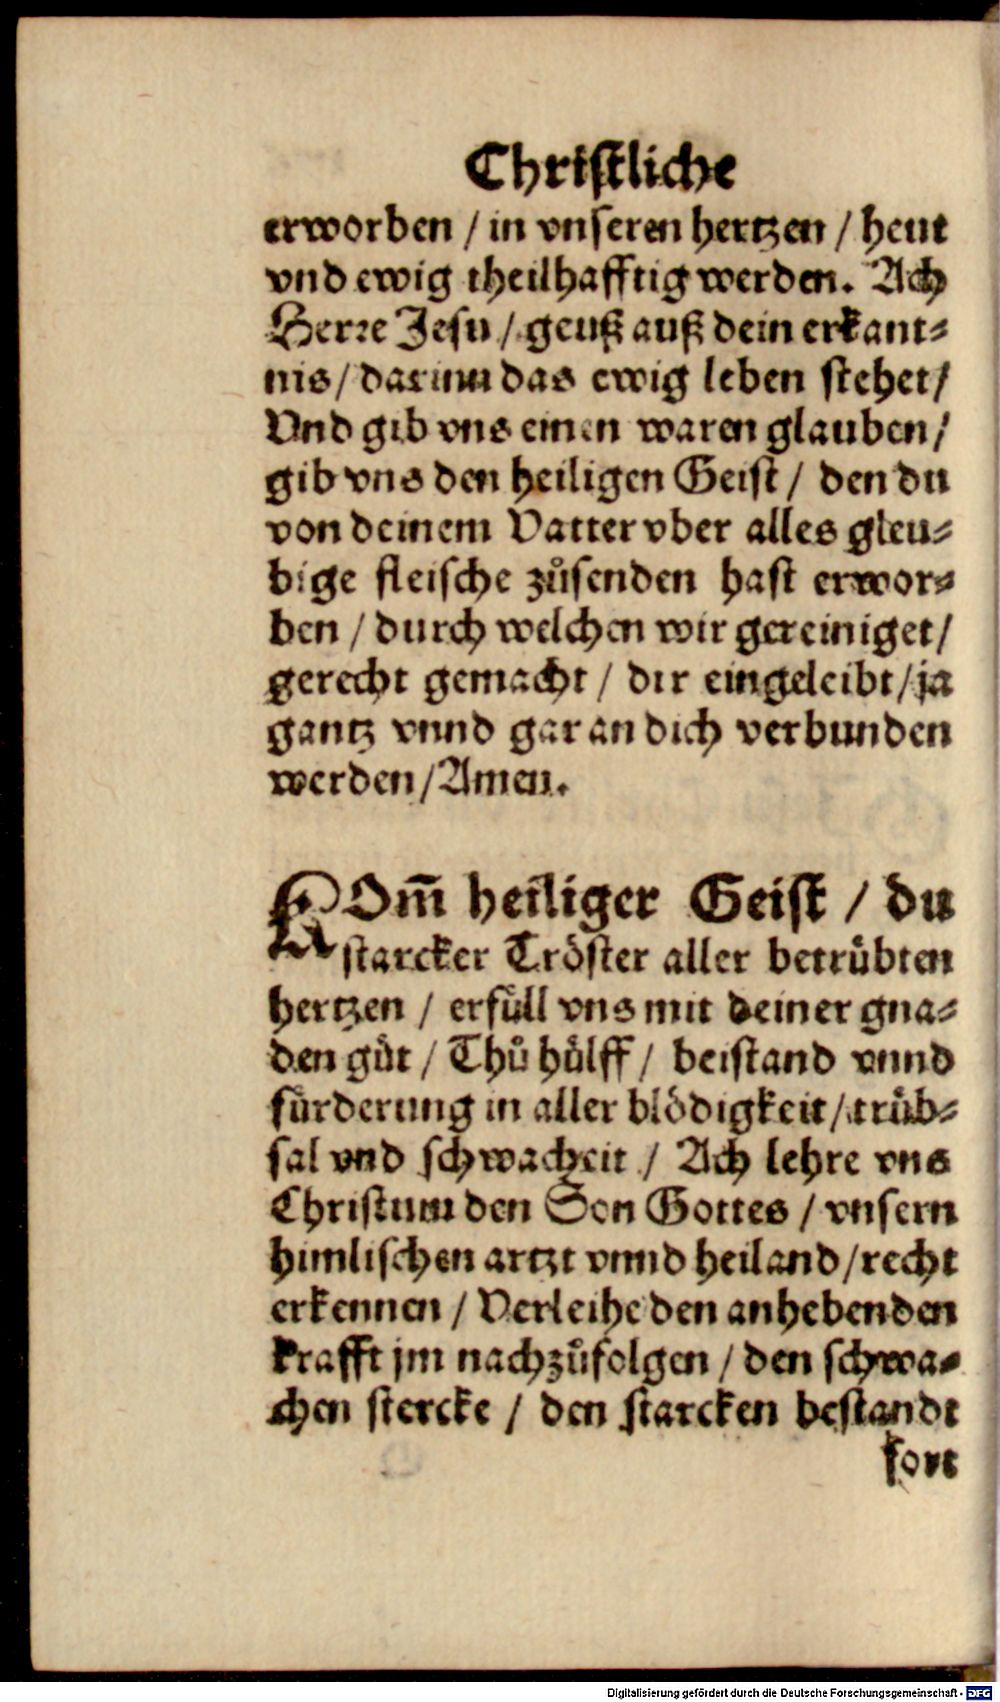 Christliche
erworben / in vnseren hertzen / heut
vnd ewig theilhafftig werden. Ach
Herre Jesu / geuß auß dein erkant⸗
nis / darinn das ewig leben stehet /
Vnd gib vns einen waren glauben /
gib vns den heiligen Geist / den du
von deinem Vatter vber alles gleu⸗
bige fleische zůsenden hast erwor⸗
ben / durch welchen wir gereiniget /
gerecht gemacht / dir eingeleibt / ja
gantz vnnd gar an dich verbunden
werden / Amen.
KOm̃ heiliger Geist / du
starcker Tröster aller betrůbten
hertzen / erfüll vns mit deiner gna⸗
den gůt / Thů hůlff / beistand vnnd
fürderung in aller blödigkeit / trůb⸗
sal vnd schwacheit / Ach lehre vns
Christum den Son Gottes / vnsern
himlischen artzt vnnd heiland / recht
erkennen / Verleihe den anhebenden
krafft jm nachzůfolgen / den schwa⸗
chen stercke / den starcken bestandt
fort
Digitalisierung gefördert durch die Deutsche Forschungsgemeinschaft - DFG